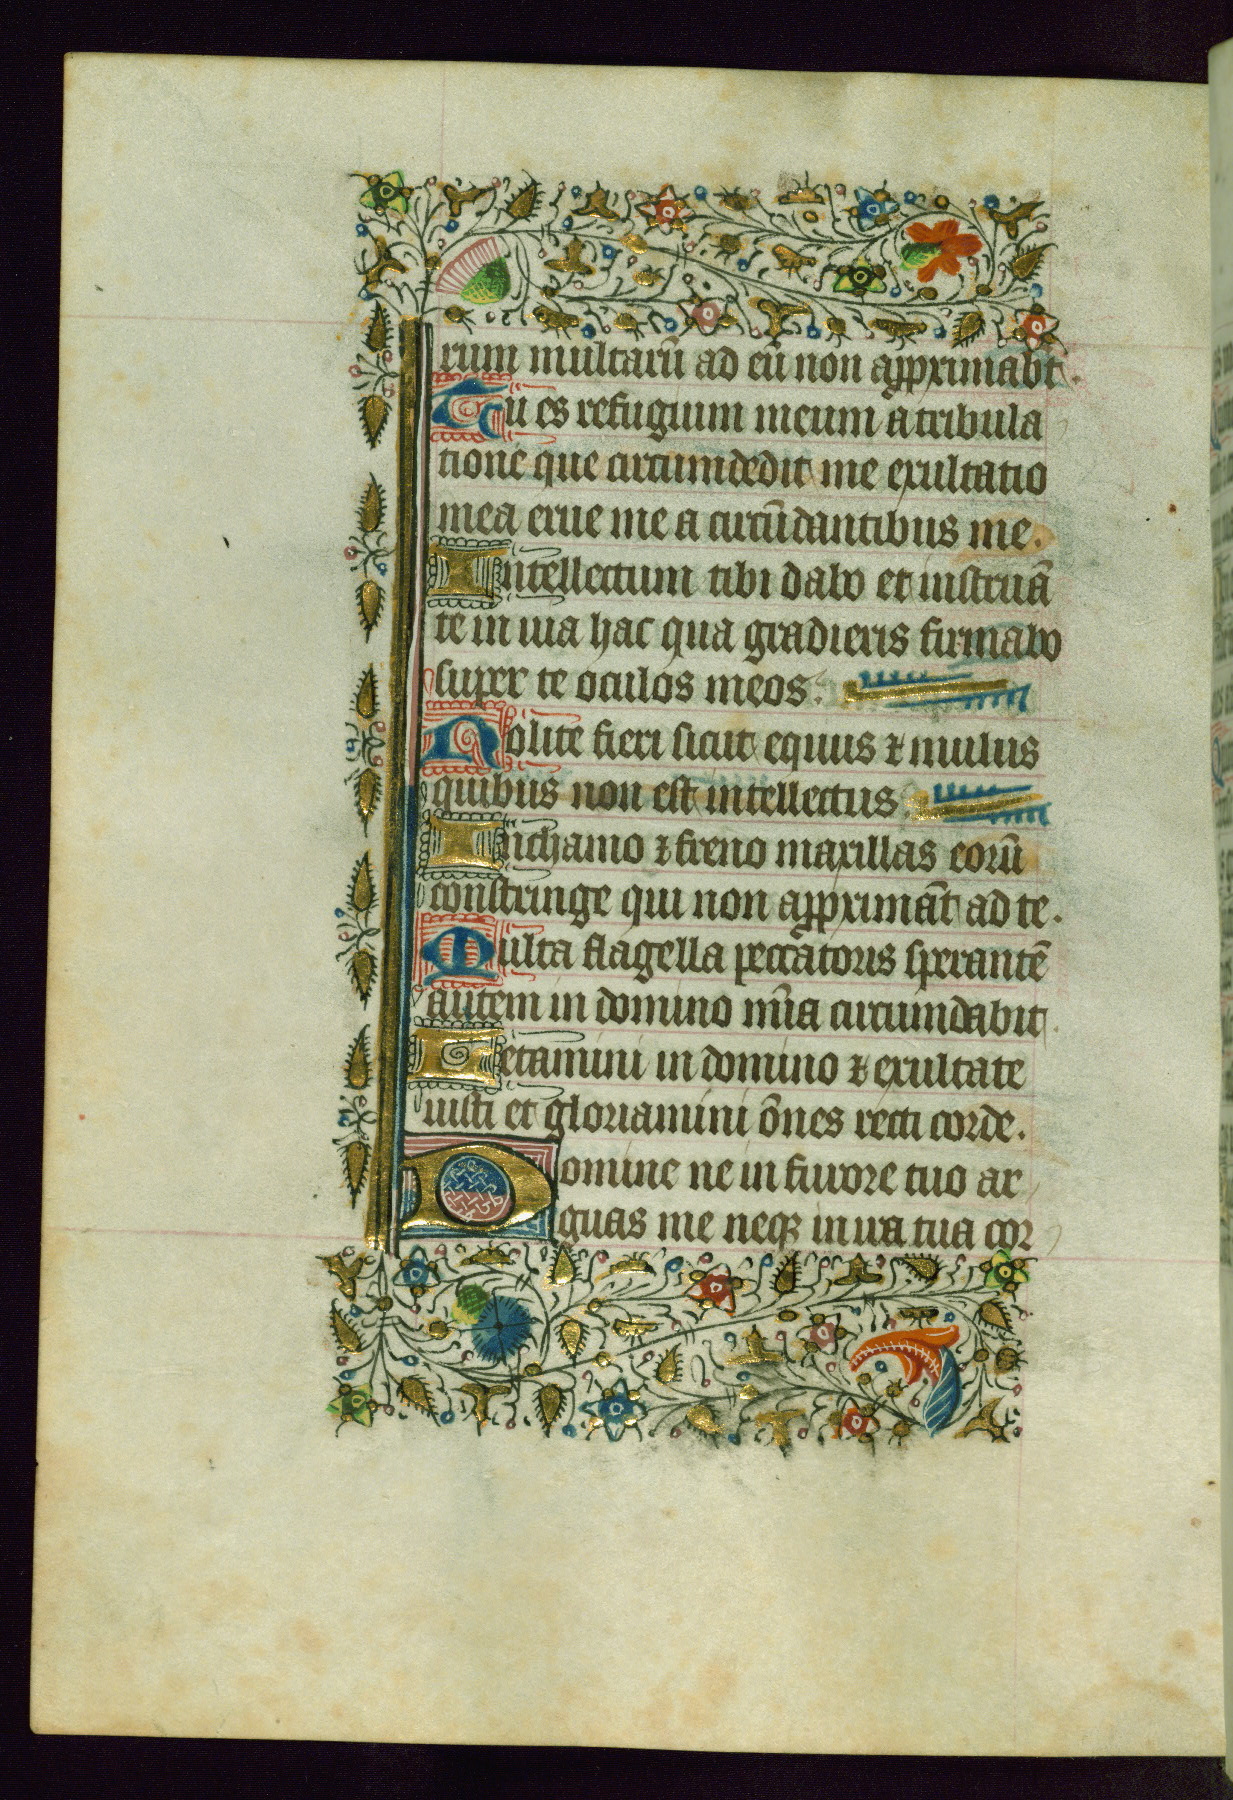 rum multarū ad eū non apprximabt.
Tu es refugium meum a tribula
tione que circumdedit me exultatio
mea erue me a circūdantibus me.
Intellectum tibi dabo et instruā
te in uia hac qua gradieris firmabo
super te oculos meos.
Nolite fieri sicut equus ⁊ mulus
quibus non est intellectus.
In chamo ⁊ freno maxillas eorū
constringe qui non apprximāt ad te.
Multa flagella peccatoris sperantē
autem in domino mīa circumdabit.
Letamini in domino ⁊ exultate
iusti et gloriamini ōnes recti corde.
Domine ne in furore tuo ar
guas me neqꝫ in ira tua cor